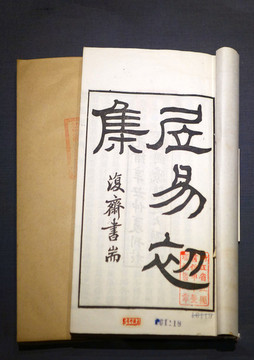 居易初
集
復齋書耑